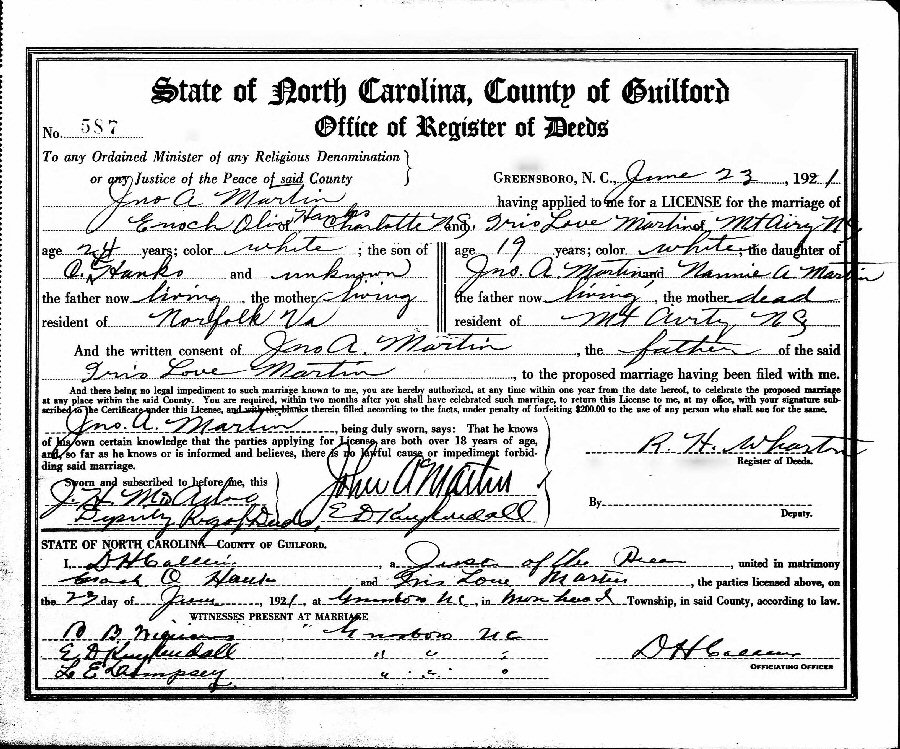 State of North Carolina, County of Guilford
No. 587
Office of Register of Deeds
To any Ordained Minister of any Religious Denomination
or any Justice of the Peace of said County
GREENSBORO, N. C., June 23, 1921
Jno A Martin having applied to me for a LICENSE for the marriage of
Enoch Olive Hanks Charlotte N C and Iris Love Martin of Mt Airy NC
age 24 years; color white; the son of
O. Hanks and unknown
the father now living, the mother living
resident of Norfolk Va
age 19 years; color white; the daughter of
Jno. A Martin and Nannie A Martin
the father now living, the mother dead
resident of Mt NC
And the written consent of Jno A. Martin, the father of the said
Iris Love Martin, to the proposed marriage having been filed with me.
And there being no legal impediment to such marriage known to me, you are hereby authorized, at any time within one year from the date hereof, to celebrate the proposed marriage
at any place within the said County. You are required, within two months after you shall have celebrated such marriage, to return this License to me, at my office, with your signature sub-
scribed to the Certificate under this License, and with the blanks therein filled according to the facts, under penalty of forfeiting $200.00 to the use of any person who shall sue for the same.
Jno. A. Martin, being duly sworn, says: That he knows
of his own certain knowledge that the parties applying for License, are both over 18 years of age,
and, so far as he knows or is informed and believes, there is no lawful cause or impediment forbid-
ding said marriage.
R. H. Wharton
Register of Deeds.
Sworn and subscribed to before me, this
J. H. McAdoo
Deputy Reg of Deeds
John A Martin
E D Kuykendall
By
Deputy.
STATE OF NORTH CAROLINA—COUNTY OF GUILFORD.
I, D H Collins, a Justice of the Peace, united in matrimony
Enoch O Hanks and Iris Love Martin, the parties licensed above, on
the 23 day of June, 1921, at Greensboro NC, in Morehead Township, in said County, according to law.
WITNESSES PRESENT AT MARRIAGE
B B Greensboro NC
E. D Kuykendall " " "
L E Dempsey " " "
D H Collins
OFFICIATING OFFICER